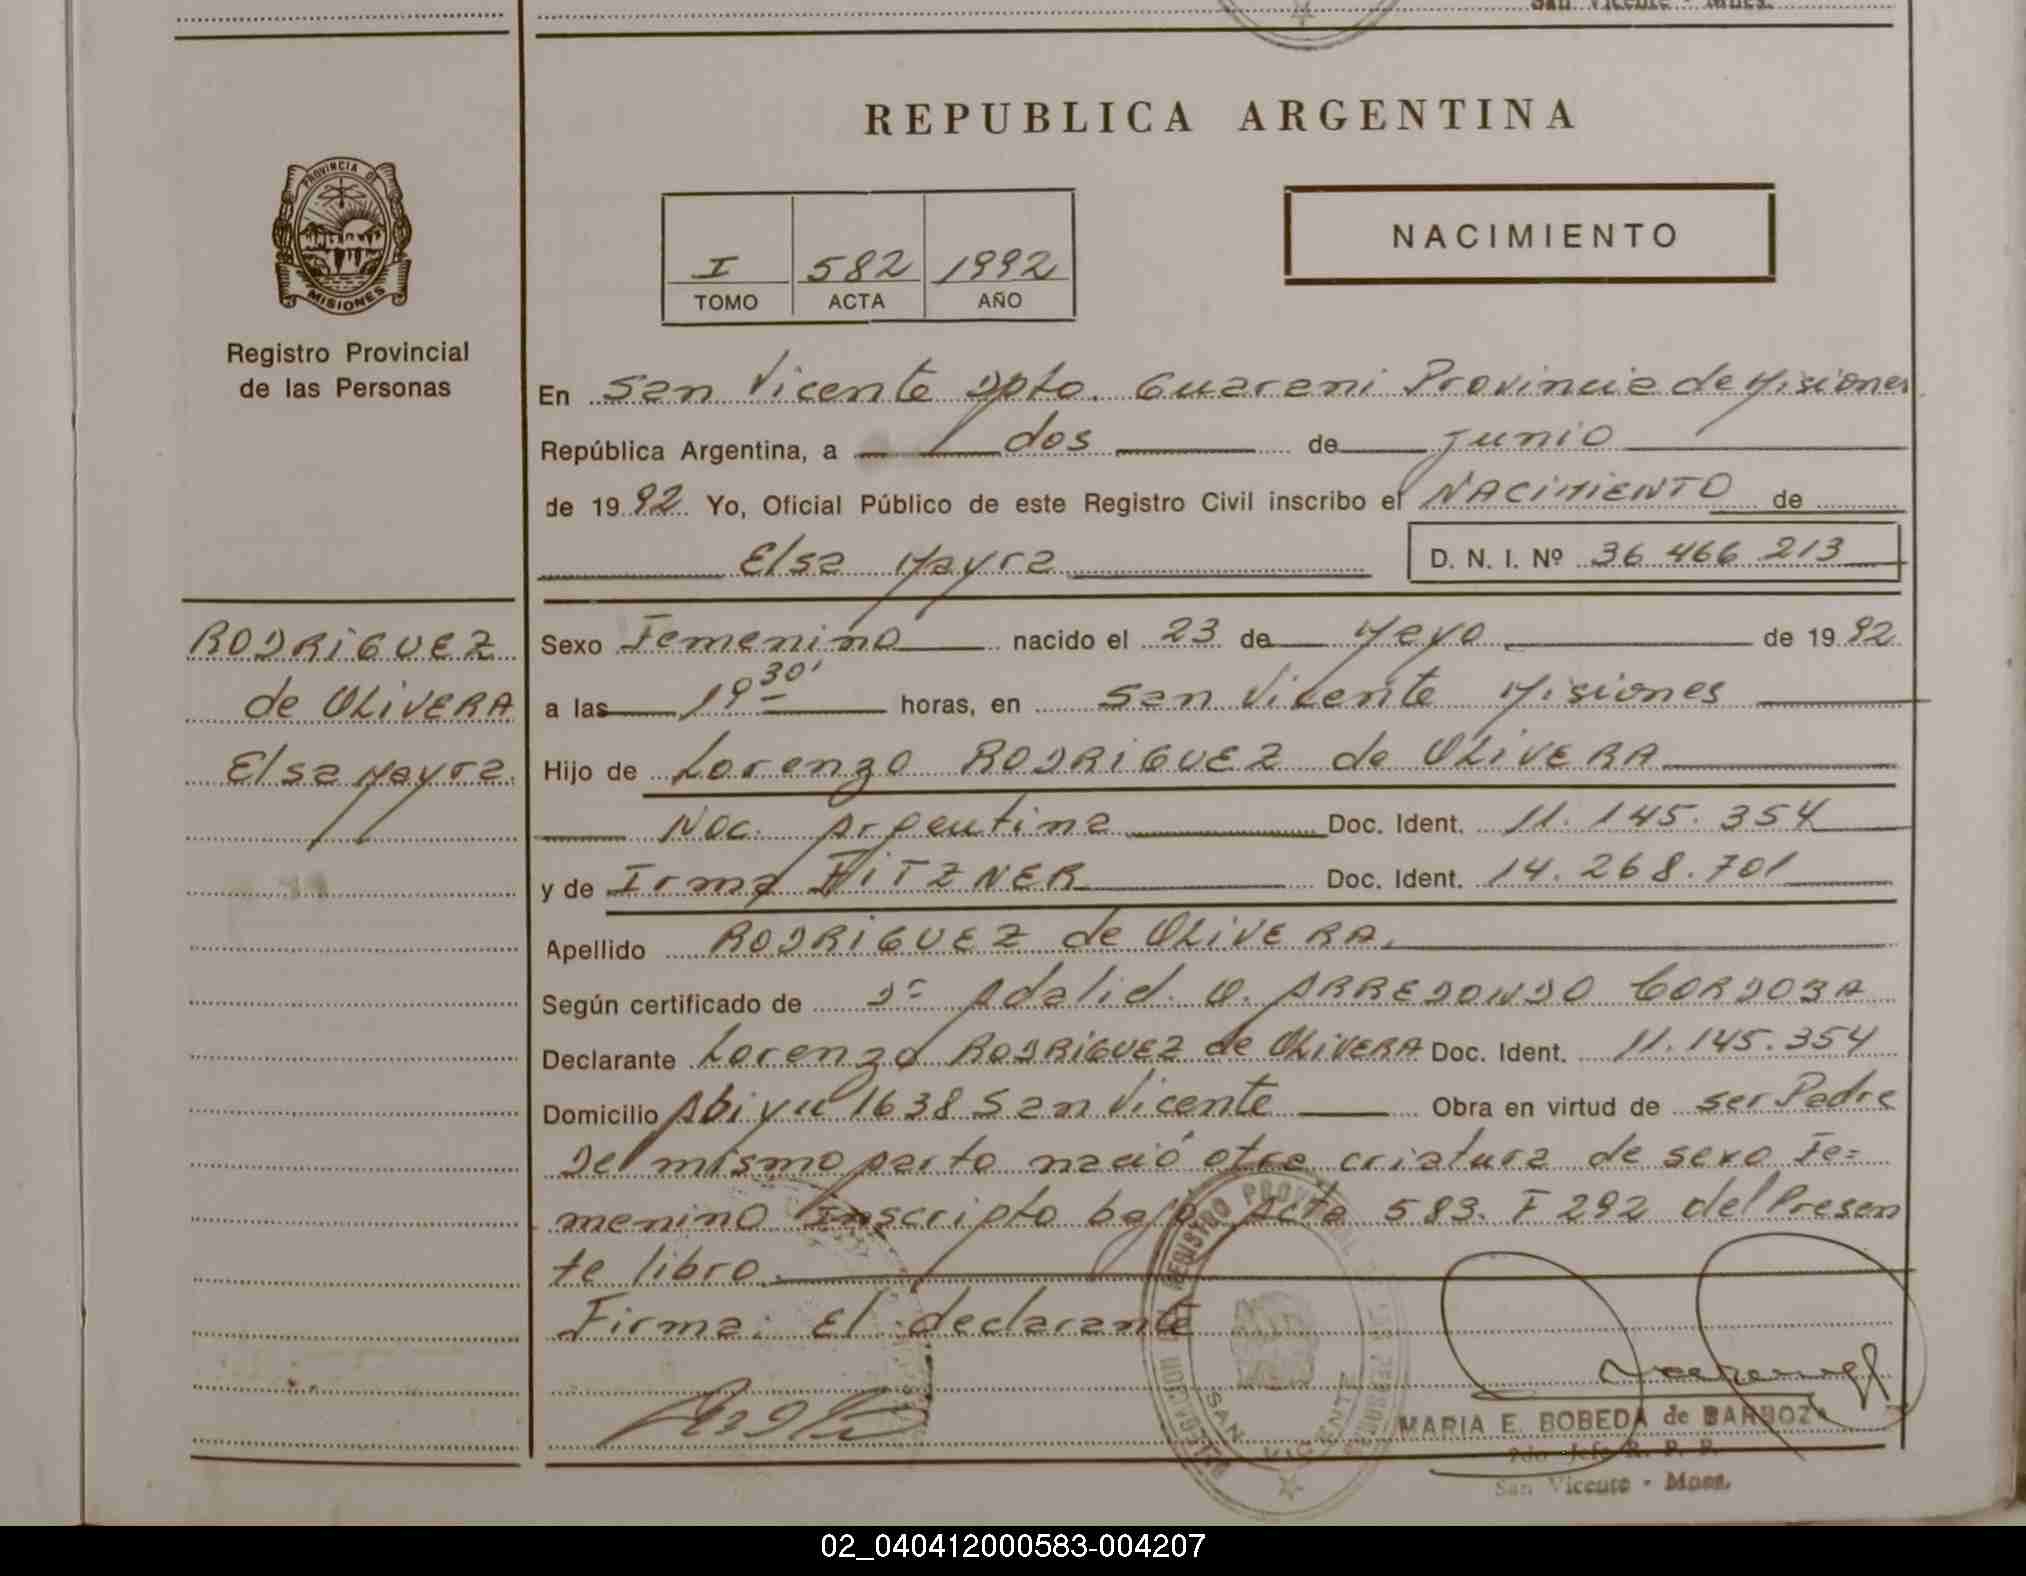 San Vicente - Mnes.
REPUBLICA ARGENTINA
PROVINCIA DE
MISIONES
Registro Provincial
de las Personas
I 582 1992
TOMO ACTA AÑO
NACIMIENTO
En San Vicente Dpto. Guarani Provincia de Misiones
República Argentina, a dos de junio
de 1992 Yo, Oficial Público de este Registro Civil inscribo el NACIMIENTO de
Elsa Mayra D. N. I. Nº 36 466 213
RODRIGUEZ
de OLIVERA
Elsa Mayra
Sexo Femenino nacido el 23 de Mayo de 1992
a las 19 30' horas, en San Vicente Misiones
Hijo de Lorenzo RODRIGUEZ de OLIVERA
Nac. Argentina Doc. Ident. 11.145.354
y de Irma FITZNER Doc. Ident. 14.268.701
Apellido RODRIGUEZ de OLIVERA
Según certificado de Dr Adalid. O. ARREDONDO CORDOBA
Declarante Lorenzo RODRIGUEZ de OLIVERA Doc. Ident. 11.145.354
Domicilio Abiyu 1638 San Vicente Obra en virtud de ser Padre
Del mismo parto nació otra criatura de sexo Fe=
menino Inscripto bajo Acta 583. F 292 del Presen
te libro.
Firma: El declarante
REGISTRO PROVINCIAL DE LAS PERSONAS
DELEGACION
SAN VICENTE
MARIA E. BOBEDA de BARBOZA
2do Jefe R. P. P.
San Vicente - Mnes.
02_040412000583-004207